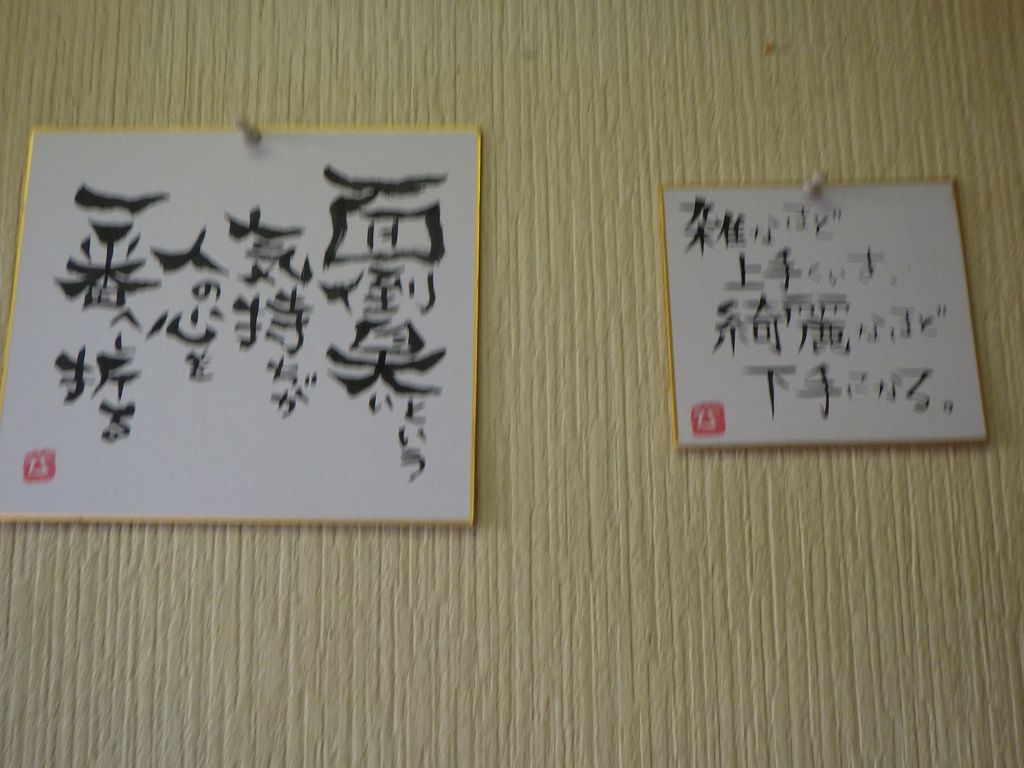 面倒臭いという
気持ちが
人の心を
一番へし折る
雑なほど
上手くいき、
綺麗なほど
下手になる。